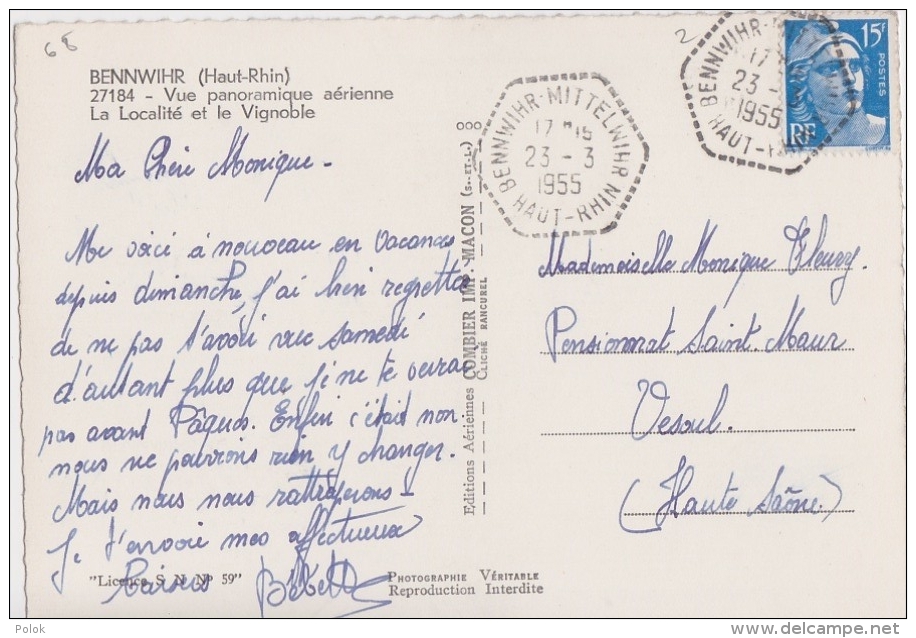 68
2
BENNWIHR (Haut-Rhin)
27184 - Vue panoramique aérienne
La Localité et le Vignoble
Ma Chère Monique -
Me voici à nouveau en vacances
depuis dimanche, j'ai bien regretter
de ne pas t'avoir vue samedi
d'autant plus que je ne te verrai
pas avant Pâques. Enfin c'était non.
nous ne pourrons rien y changer.
Mais nous nous rattraperons -
Je t'envoie mes affectueux
baisers Bébette
"Licence S N N° 59"
Editions Aériennes COMBIER IMP. MACON (S.-ET-L.)
CLICHÉ RANCUREL
PHOTOGRAPHIE VÉRITABLE
Reproduction Interdite
BENNWIHR-MITTELWIHR
17 15
23 - 3
1955
HAUT-RHIN
BENNWIHR-MITT
17
23 -
1955
HAUT-
15F
POSTES
RF
Mademoiselle Monique Fleury.
Pensionnat Saint Maur
Vesoul.
(Haute Saône)
Polok
www.delcampe.net